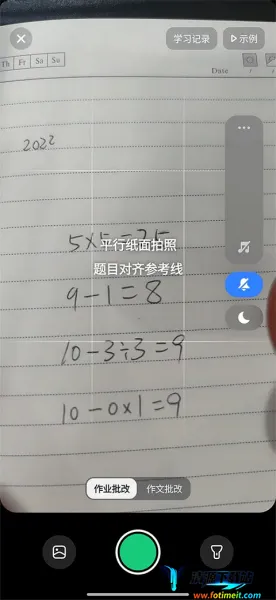 学习记录 示例
Th Fr Sa Su
Date
2022
5×5=25
平行纸面拍照
题目对齐参考线
9-1=8
10-3÷3=9
10-0×1=9
作业批改 作文批改
www.fotimeit.com